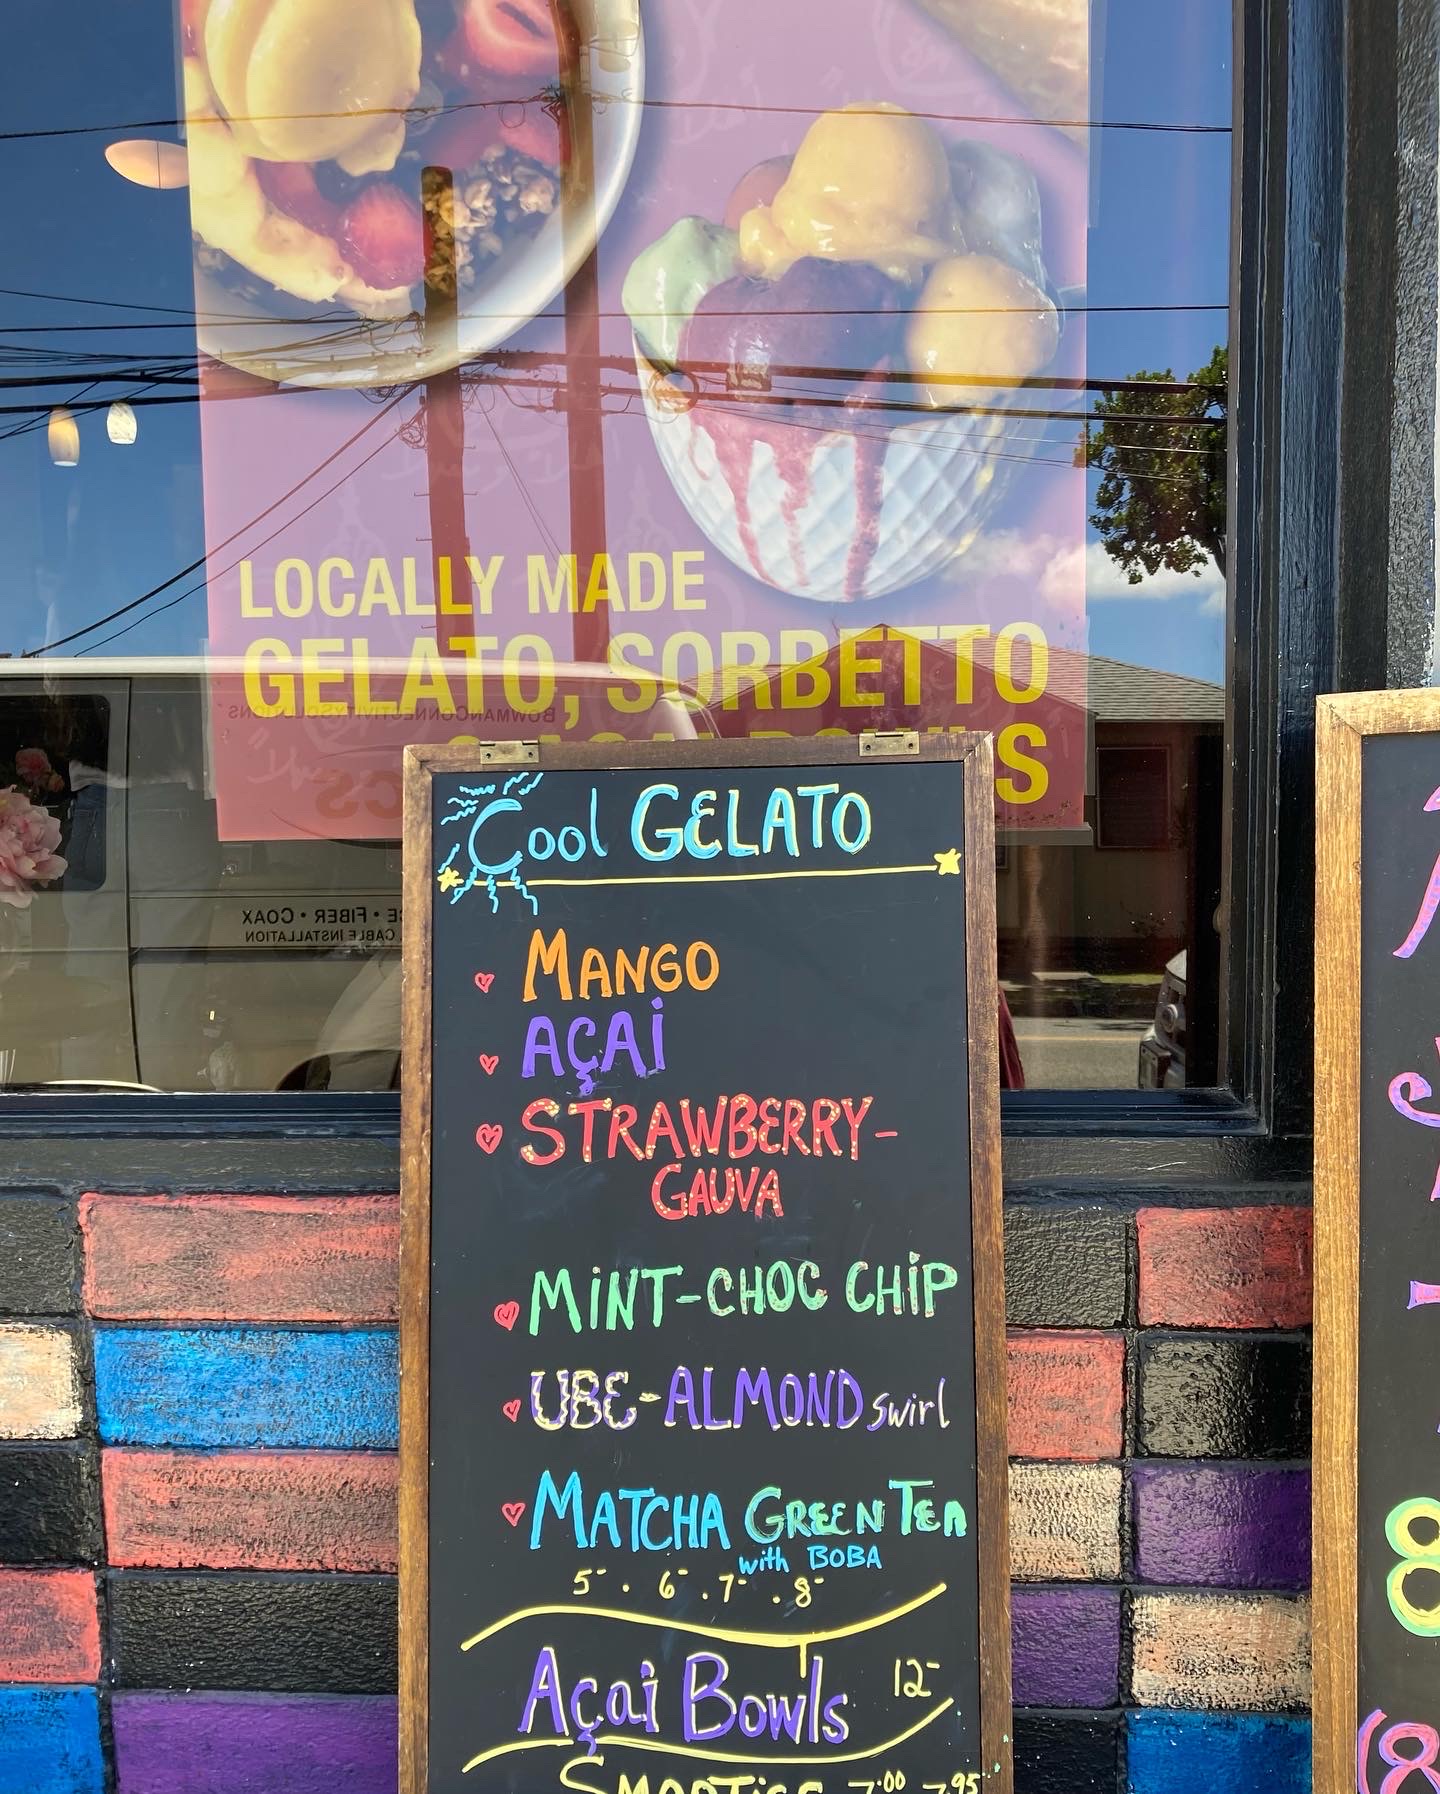 LOCALLY MADE
GELATO, SORBETTO
S
BOWMANCONNECTIVITYSOLUTIONS
FIBER • COAX
CABLE INSTALLATION
Cool GELATO
MANGO
AÇAI
STRAWBERRY-
GAUVA
MINT-CHOC CHIP
UBE-ALMOND swirl
MATCHA GREEN TEA
with BOBA
5- . 6- . 7- . 8-
Açai Bowls 12-
SMOOTIES 7.00 7.95
8
(8